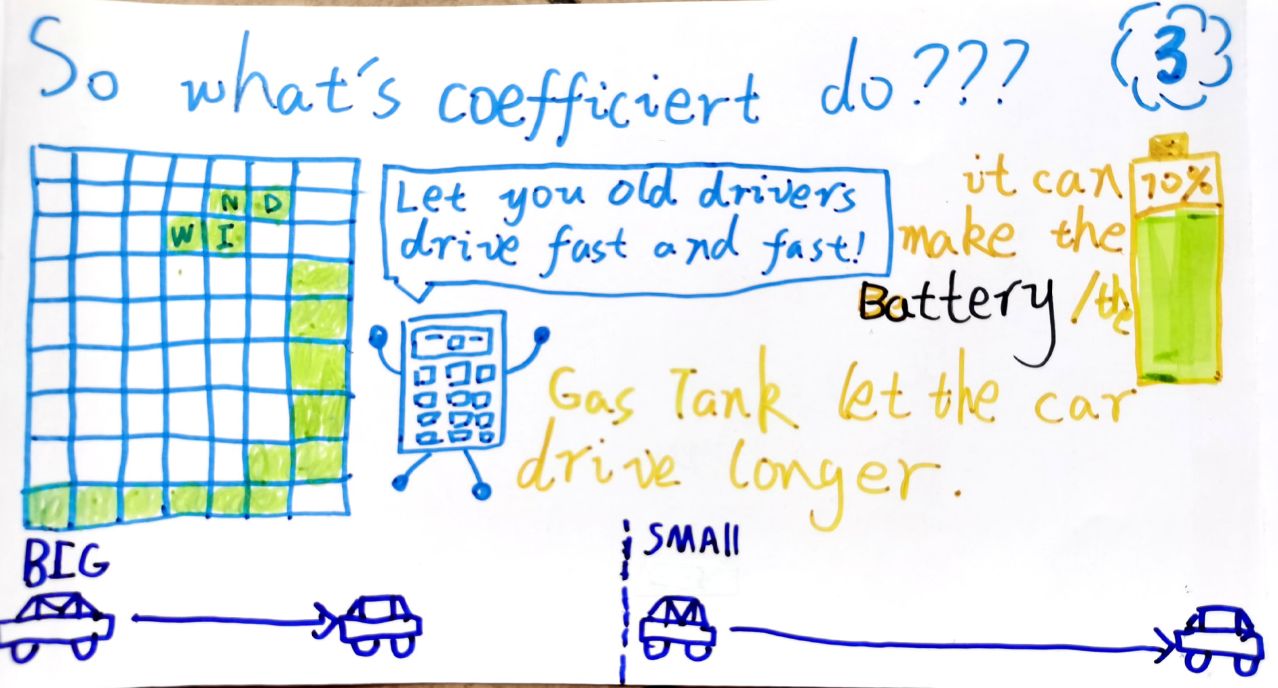 So what's coefficiert do???
3
N D
W I
Let you old drivers
drive fast and fast!
it can
make the
Battery /the
Gas Tank let the car
drive longer.
70%
BIG
SMAll